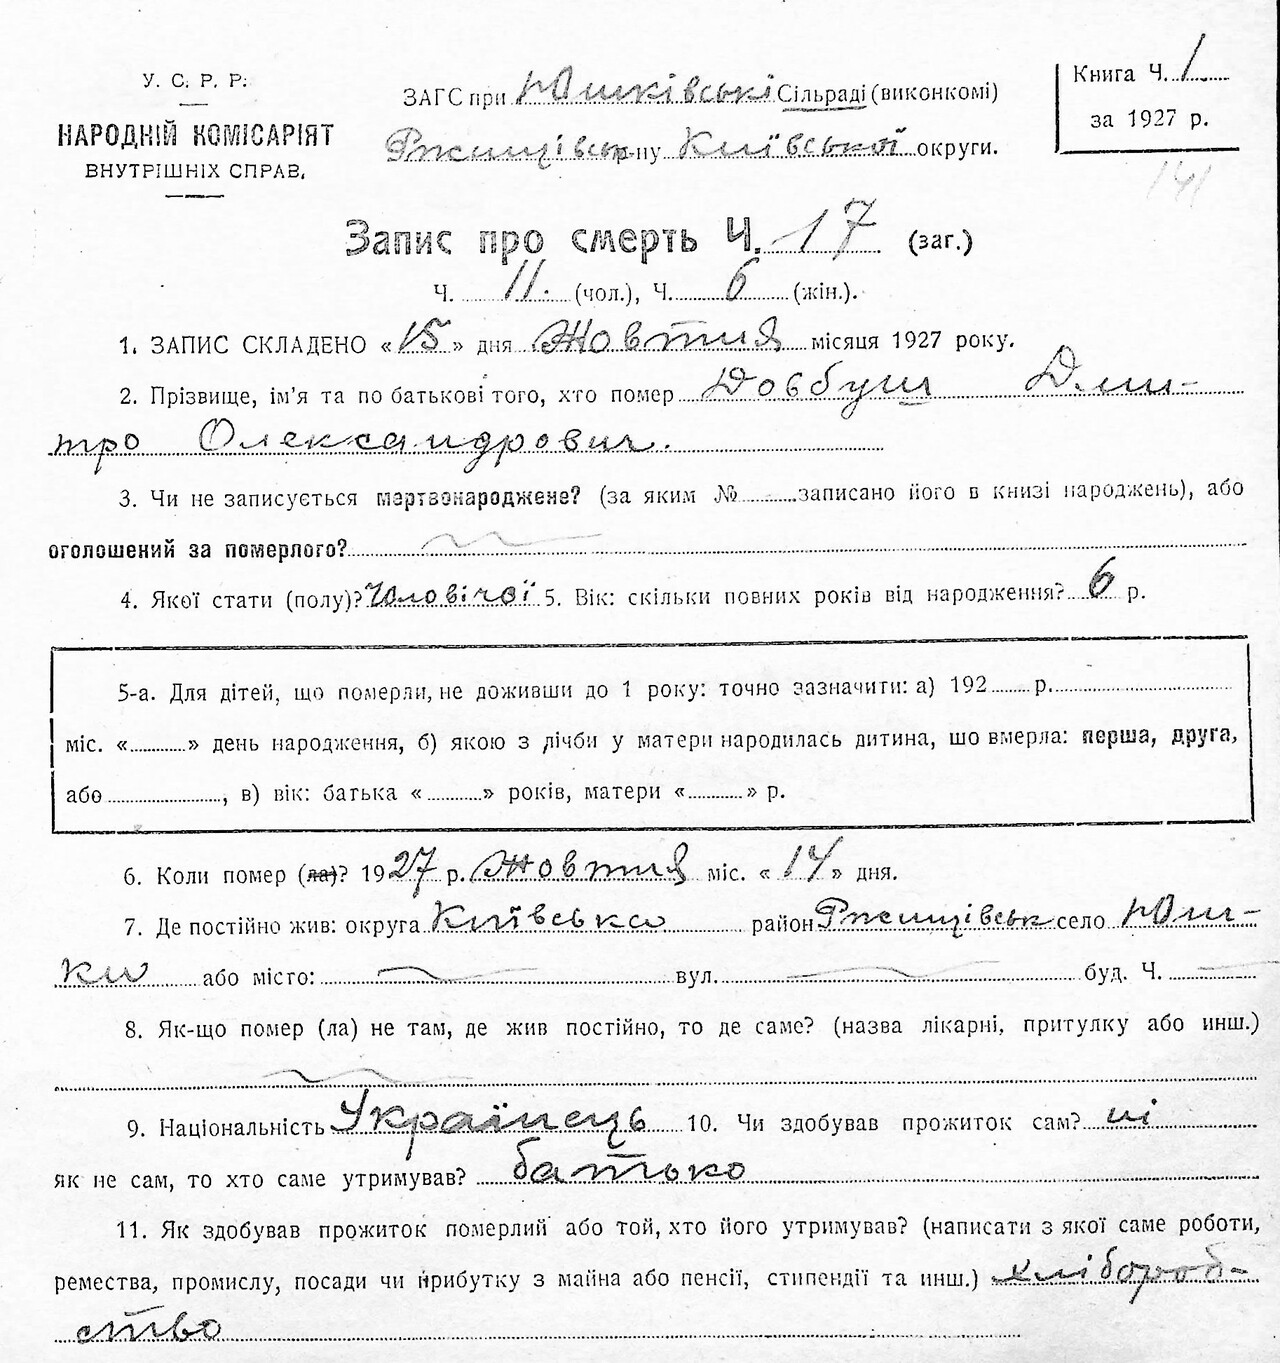 У. С. Р. Р.
НАРОДНІЙ КОМІСАРІЯТ
ВНУТРІШНІХ СПРАВ.
ЗАГС при Юшківські Сільраді (виконкомі)
Ржищівськ р-ну Київської округи.
Книга Ч. 1
за 1927 р.
141
Запис про смерть Ч. 17 (заг.)
Ч. 11. (чол.), Ч. 6 (жін.).
1. ЗАПИС СКЛАДЕНО «15» дня Жовтня місяця 1927 року.
2. Прізвище, ім'я та по батькові того, хто помер Довбуш Дми-
тро Олександрович.
3. Чи не записується мертвонароджене? (за яким № записано його в книзі народжень), або
оголошений за померлого?
4. Якої стати (полу)? Чоловічої 5. Вік: скільки повних років від народження? 6 р.
5-а. Для дітей, що померли, не доживши до 1 року: точно зазначити: а) 192 р.
міс. « » день народження, б) якою з лічби у матери народилась дитина, що вмерла: перша, друга,
або , в) вік: батька « » років, матери « » р.
6. Коли помер (ла)? 1927 р. Жовтня міс. «14» дня.
7. Де постійно жив: округа Київська район Ржищівськ село Юш-
ки або місто: вул. буд. Ч.
8. Як-що помер (ла) не там, де жив постійно, то де саме? (назва лікарні, притулку або инш.)
9. Національність Українець 10. Чи здобував прожиток сам? ні
як не сам, то хто саме утримував? батько
11. Як здобував прожиток померлий або той, хто його утримував? (написати з якої саме роботи,
ремества, промислу, посади чи прибутку з майна або пенсії, стипендії та инш.) хлібороб-
ство